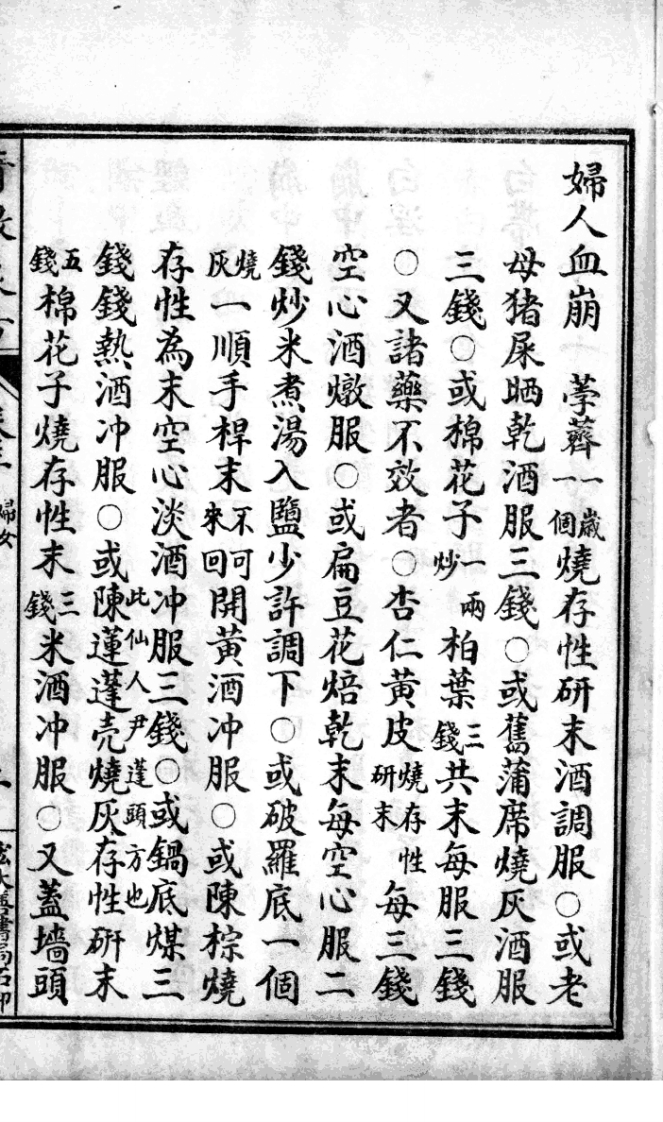 婦人血崩 荸薺一歲一個燒存性研末酒調服○或老
母猪屎晒乾酒服三錢○或舊蒲席燒灰酒服
三錢○或棉花子一兩炒柏葉三錢共末每服三錢
○又諸藥不效者○杏仁黃皮燒存性研末每三錢
空心酒燉服○或扁豆花焙乾末每空心服二
錢炒米煮湯入鹽少許調下○或破羅底一個
燒灰一順手桿末不可來回開黃酒冲服○或陳棕燒
存性為末空心淡酒冲服三錢○或鍋底煤三
錢錢熱酒冲服○或陳蓮蓬壳燒灰存性研末
此仙人尹蓬頭方也
五錢棉花子燒存性末三錢米酒冲服○又蓋墻頭
婦女